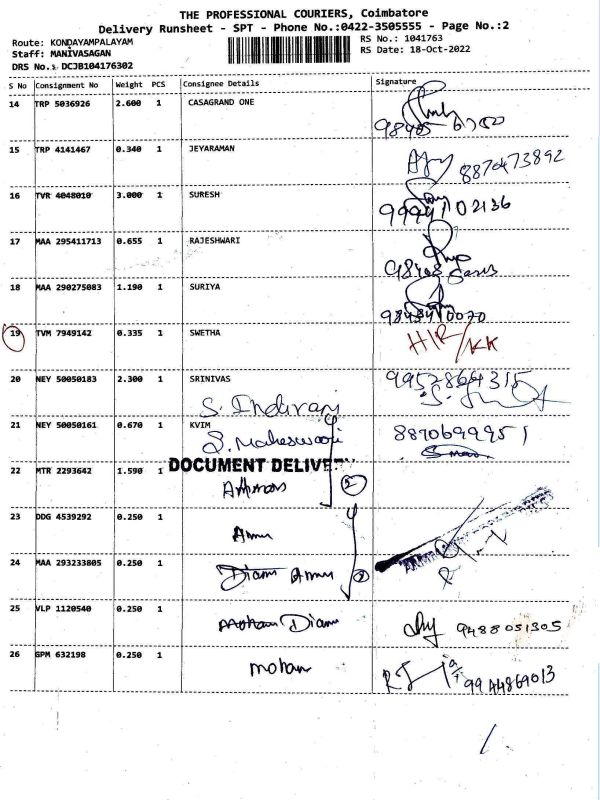 THE PROFESSIONAL COURIERS, Coimbatore
Delivery Runsheet - SPT - Phone No.:0422-3505555 - Page No.:2
Route: KONDAYAMPALAYAM
Staff: MANIVASAGAN
DRS No.: DCJB104176302
RS No.: 1041763
RS Date: 18-Oct-2022
S No Consignment No Weight PCS Consignee Details Signature
14 TRP 5036926 2.600 1 CASAGRAND ONE
15 TRP 4141467 0.340 1 JEYARAMAN
8870473892
16 TVR 4048010 3.000 1 SURESH
9994102136
17 MAA 295411713 0.655 1 RAJESHWARI
18 MAA 290275083 1.190 1 SURIYA
19 TVM 7949142 0.335 1 SWETHA
HIR/KK
20 NEY 50050183 2.300 1 SRINIVAS
9952864315
S. Indirani
21 NEY 50050161 0.670 1 KVIM
S. Maheswari
8890699951
22 MTR 2293642 1.590 1
DOCUMENT DELIVERY
2
23 DDG 4539292 0.250 1
Ammu
24 MAA 293233805 0.250 1
25 VLP 1120540 0.250 1
9488051305
26 GPM 632198 0.250 1
mohan
9944869013